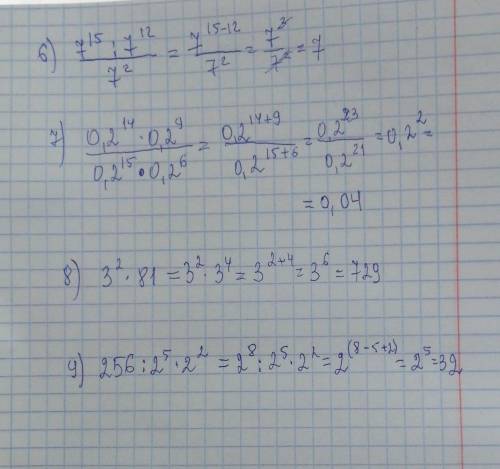 6) (7^15 : 7^12)/7^2 = 7^(15-12)/7^2 = 7^3/7^2 = 7
7) (0,2^14 · 0,2^9)/(0,2^15 · 0,2^6) = 0,2^(14+9)/0,2^(15+6) = 0,2^23/0,2^21 = 0,2^2 =
= 0,04
8) 3^2 · 81 = 3^2 · 3^4 = 3^(2+4) = 3^6 = 729
9) 256 : 2^5 · 2^2 = 2^8 : 2^5 · 2^2 = 2^(8-5+2) = 2^5 = 32